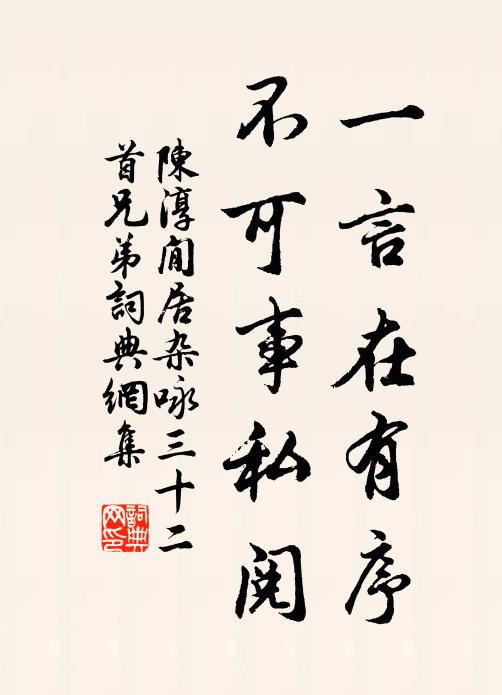 一言在有序
不可事私阋
陳淳閒居杂咏三十二
首兄弟詞典網集
詞典
网印